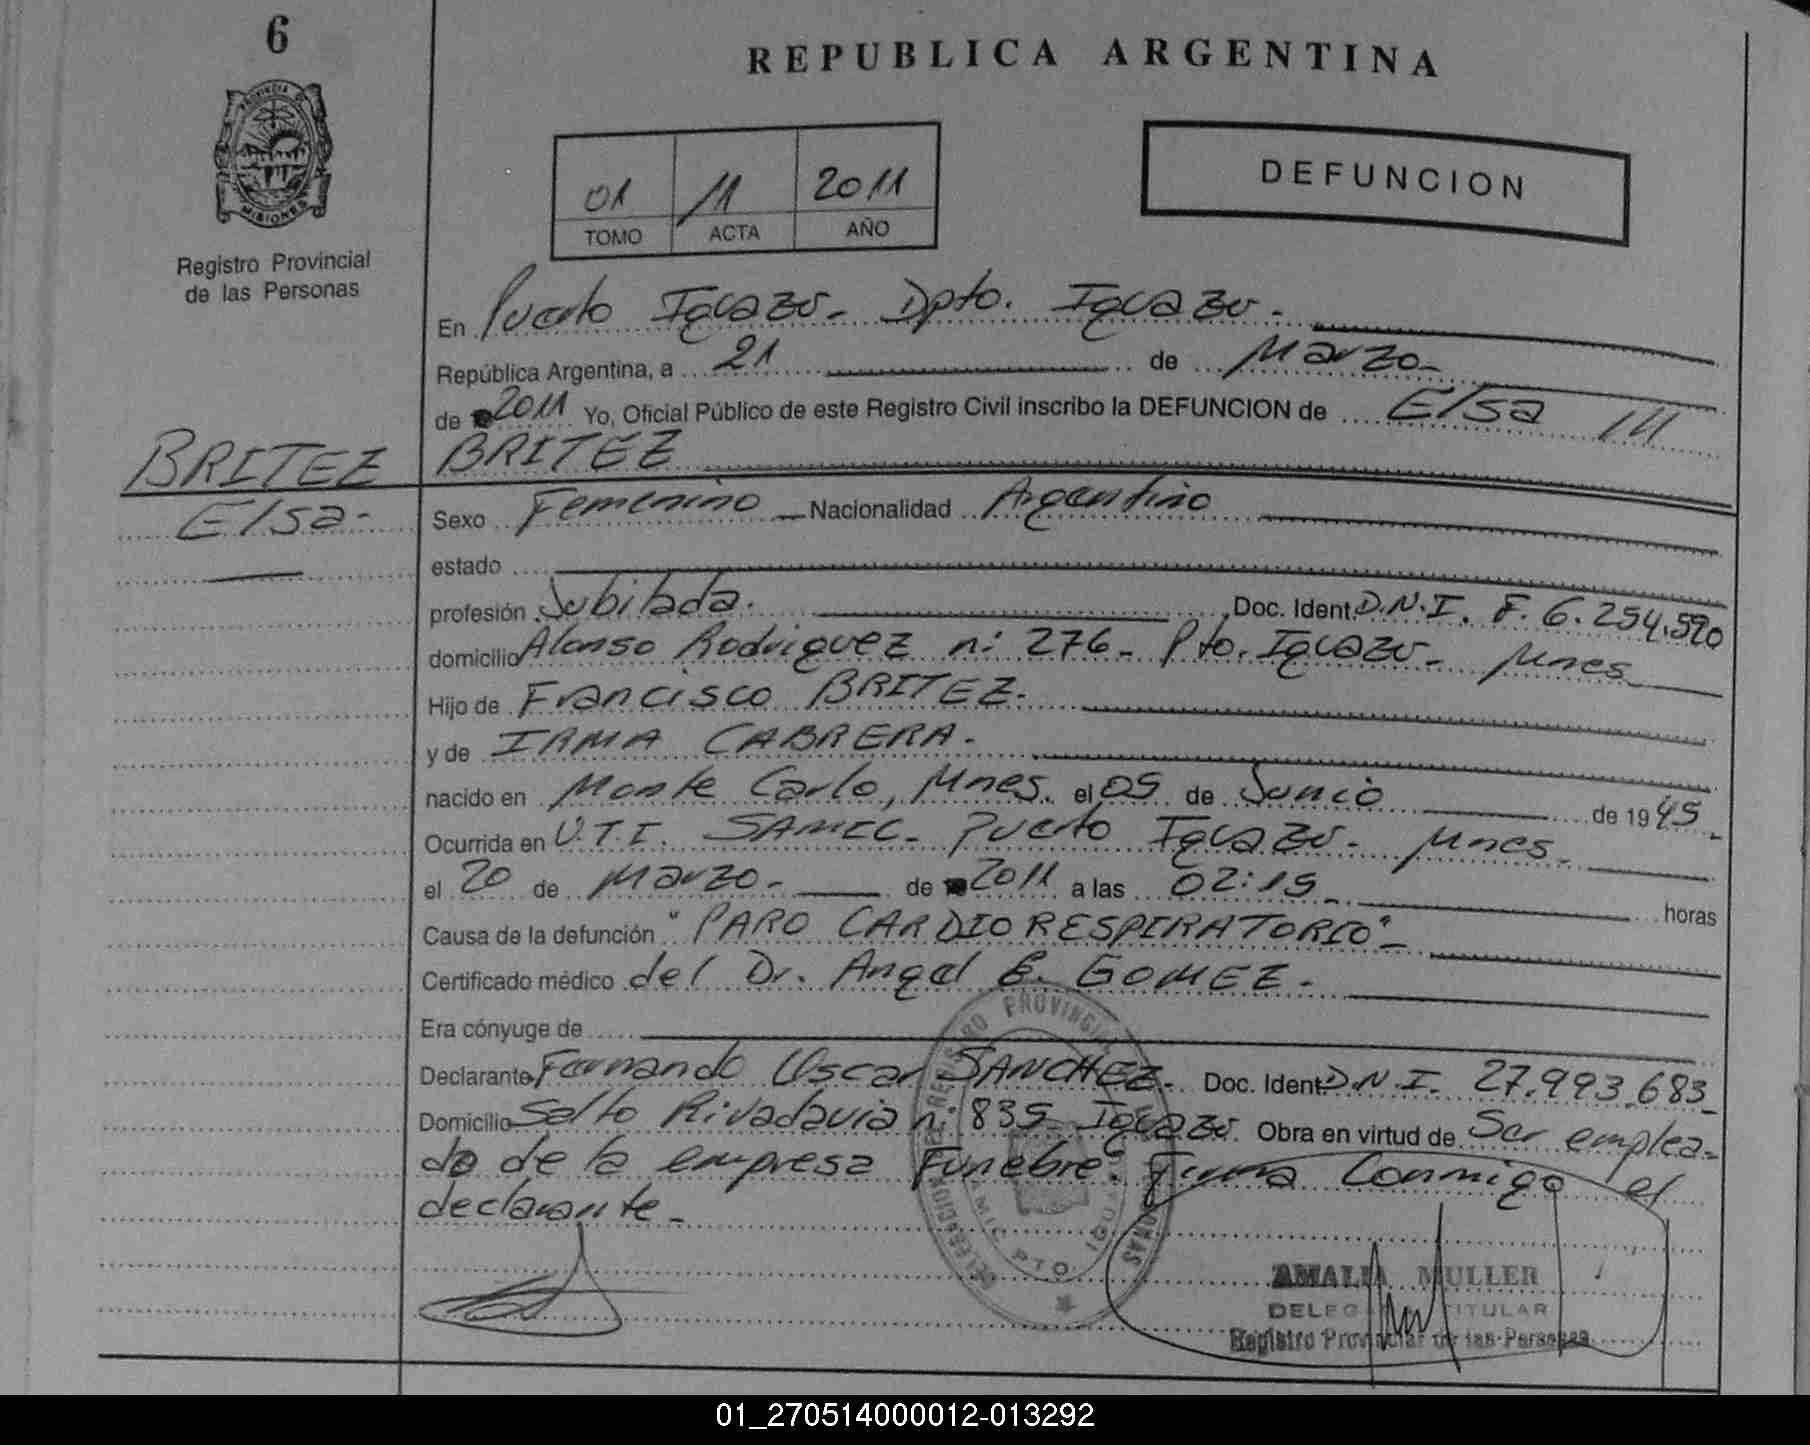 6
REPUBLICA ARGENTINA
PROVINCIA DE
MISIONES
Registro Provincial
de las Personas
01 11 2011
TOMO ACTA AÑO
DEFUNCION
En Puerto Iguazu- Dpto. Iguazu-
República Argentina, a 21 de Marzo-
de 2011 Yo, Oficial Público de este Registro Civil inscribo la DEFUNCION de Elsa ///
BRITEZ
BRITEZ
Elsa-
Sexo Femenino Nacionalidad Argentino
estado
profesión Jubilada. Doc. Ident. D.N.I. F. 6.254.590
domicilio Alonso Rodriguez n: 276- Pto. Iguazu- Mnes
Hijo de Francisco BRITEZ.
y de IRMA CABRERA.
nacido en Monte Carlo, Mnes. el 05 de Junio de 1945-
Ocurrida en U.T.I. SAMIC- Puerto Iguazu- Mnes-
el 20 de Marzo- de 2011 a las 02:15 horas
Causa de la defunción "PARO CARDIORESPIRATORIO"-
Certificado médico del Dr. Angel E. GOMEZ-
Era cónyuge de
Declarante Fernando Oscar SANCHEZ- Doc. Ident. D.N.I. 27.993.683-
Domicilio Salto Rivadavia n: 835 Iguazu. Obra en virtud de Ser emplea-
do de la empresa Funebre. Firma Conmigo el
declarante-
REGISTRO PROVINCIAL
PTO. IGUA
AMALIA MULLER
TITULAR
Registro Provincial de las Personas
01_270514000012-013292